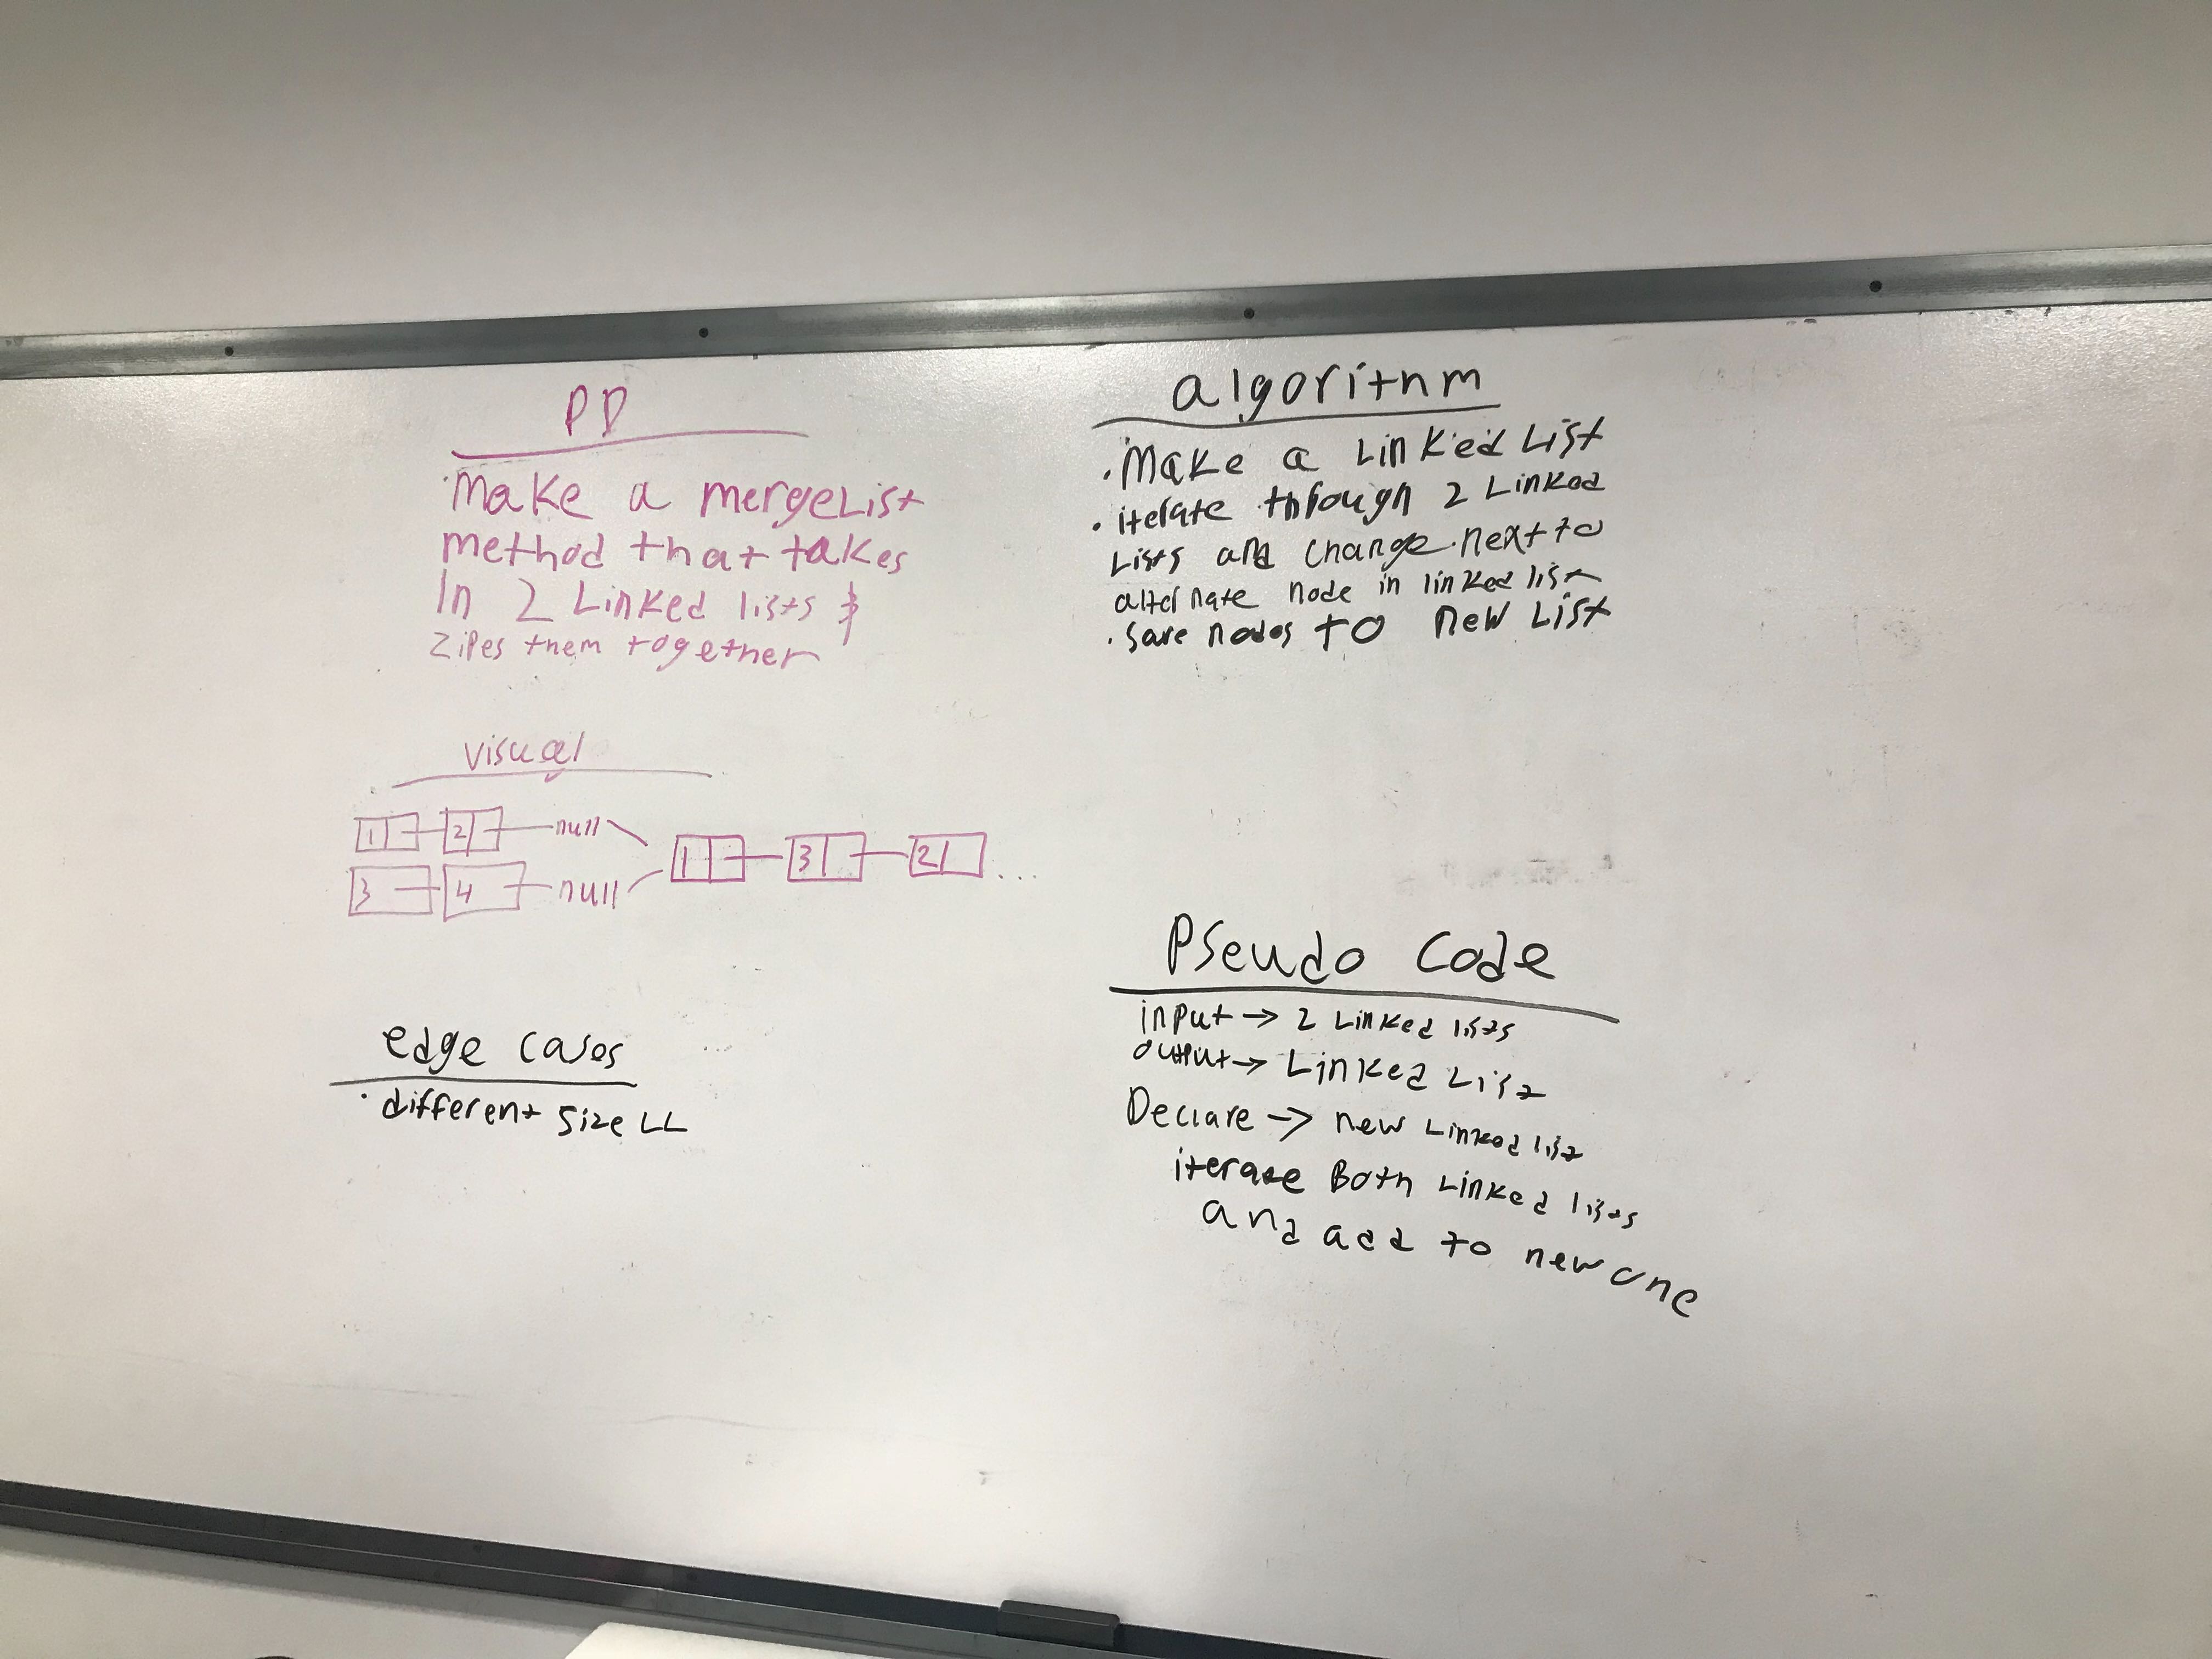 PD
· Make a mergeList
method that takes
In 2 Linked lists &
Zipes them together
visual
1 2 null
3 4 null
1 3 2 ...
edge cases
· different Size LL
algorithm
· Make a Linked List
· iterate through 2 Linked
Lists and change .next to
alternate node in linked list
· Save nodes to new List
Pseudo Code
input → 2 Linked lists
output → Linked List
Declare → new Linked list
iterate Both Linked lists
and add to new one